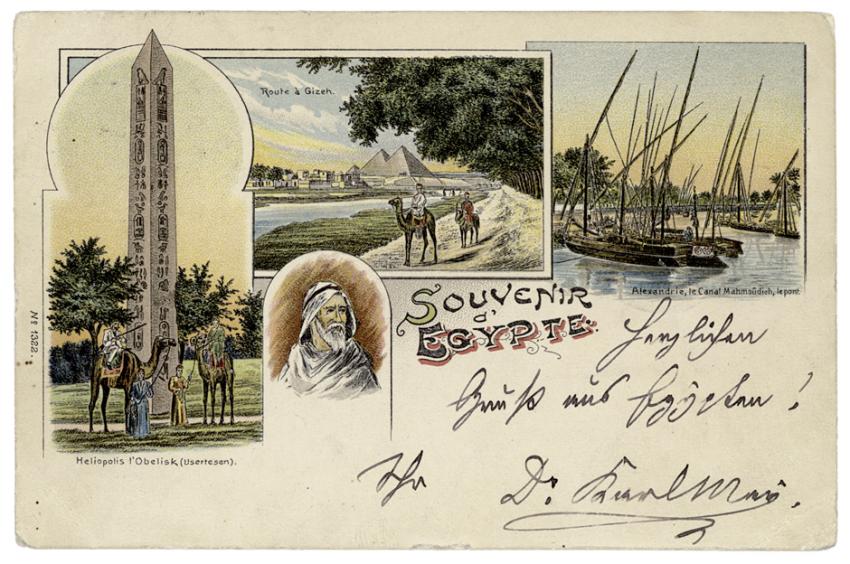 Route à Gizeh.
Alexandrie, le Canal Mahmoûdieh, le pont.
SOUVENIR
d'
EGYPTE:
Nº 1322.
Heliopolis l'Obelisk, (Usertesen).
Herzlichen
Gruß aus Egÿpten!
Ihr Dr. Karl May.